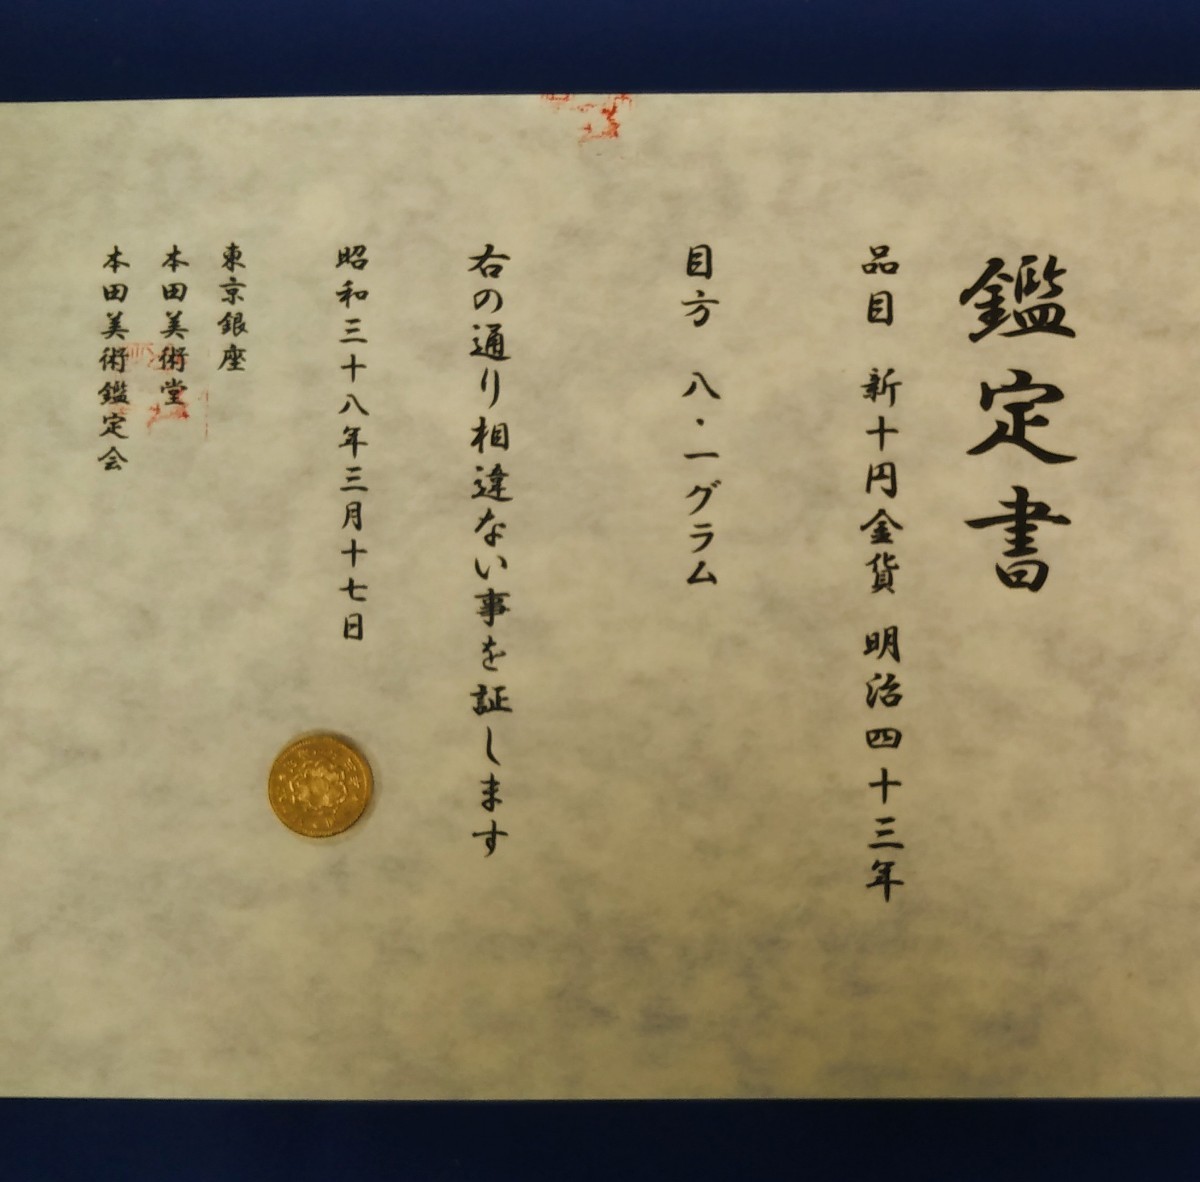 鑑定書
品目 新十円金貨 明治四十三年
目方 八・一グラム
右の通り相違ない事を証します
昭和三十八年三月十七日
東京銀座
本田美術堂
本田美術鑑定会